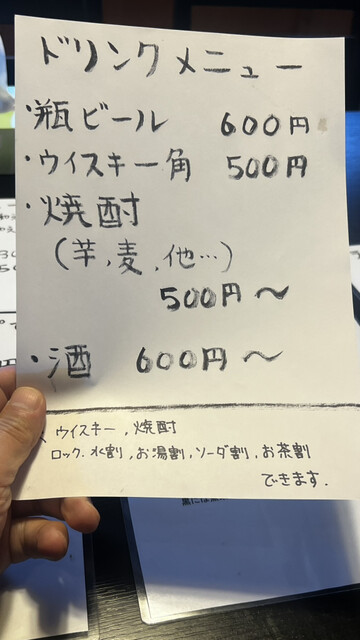 ドリンクメニュー
・瓶ビール 600円
・ウイスキー角 500円
・焼酎
(芋,麦,他…)
500円〜
・酒 600円〜
ウイスキー,焼酎
ロック.水割,お湯割,ソーダ割,お茶割
できます.